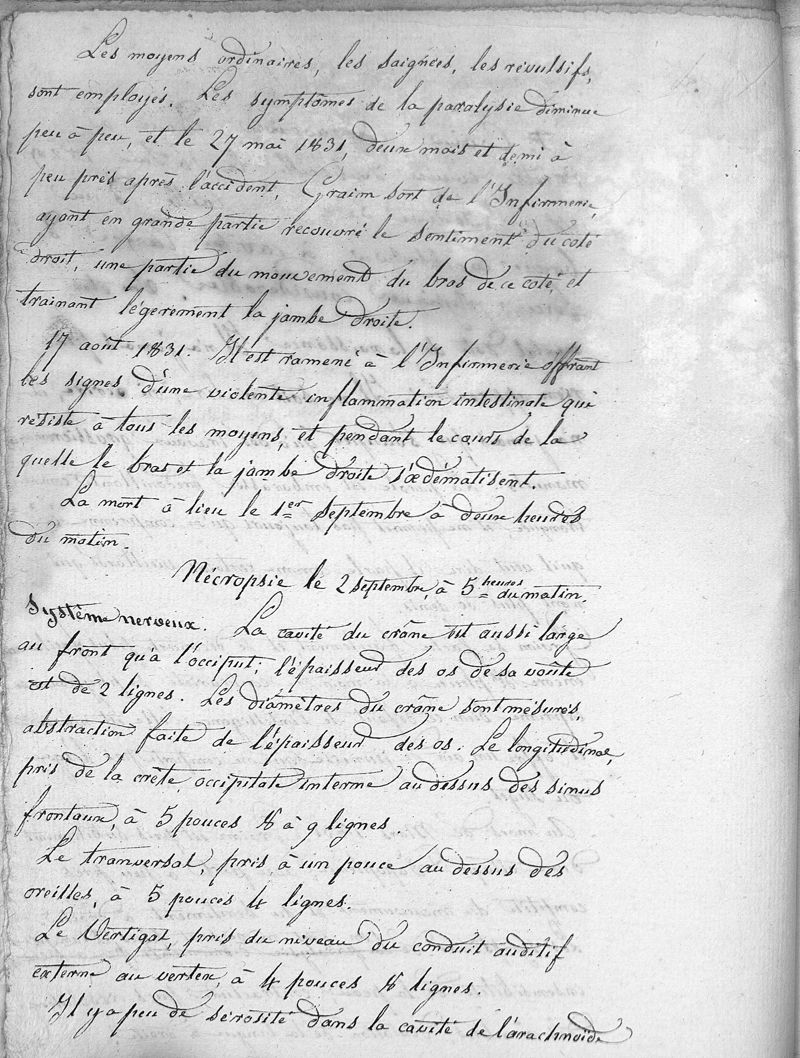 Les moyens ordinaires, les saignées, les révulsifs,
sont employés. Les symptômes de la paralysie diminue
peu à peu, et le 27 mai 1831, deux mois et demi à
peu près après l'accident, Graim sort de l'Infirmerie,
ayant en grande partie recouvré le sentiment du coté
droit, une partie du mouvement du bras de ce coté, et
trainant légerement la jambe droite.
17 août 1831. Il est ramené à l'Infirmerie offrant
les signes d'une violente inflammation intestinale qui
résiste à tous les moyens, et pendant le cours de la
quelle le bras et la jambe droite s'œdématisent.
La mort à lieu le 1er septembre à deux heures
du matin.
Nécropsie le 2 septembre, à 5 heures du matin.
Système nerveux. La cavité du crâne est aussi large
au front qu'à l'occiput; l'épaisseur des os de sa voûte
est de 2 lignes. Les diamètres du crâne sont mesurés,
abstraction faite de l'épaisseur des os. Le longitudinal,
pris de la crête occipitale interne au dessus des sinus
frontaux, à 5 pouces 8 à 9 lignes.
Le tranversal, pris à un pouce au dessus des
oreilles, à 5 pouces 4 lignes.
Le Vertigal, pris du niveau du conduit auditif
externe au vertex, à 4 pouces 8 lignes.
Il y a peu de sérosité dans la cavité de l'arachnoïde